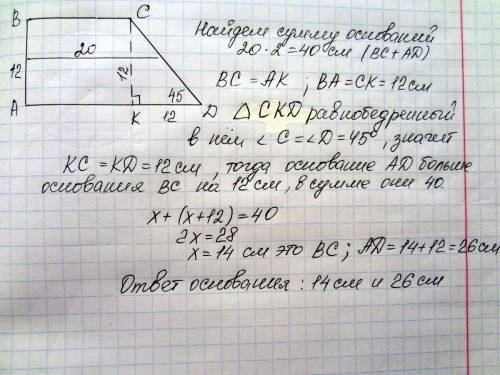 B
C
20
12
12
A
K
12
45
D
Найдем сумму оснований
20·2=40 см (BC+AD)
BC=AK ; BA=CK=12см
△ CKD равнобедренный
в нём ∠C=∠D=45°, значит
KC=KD=12см, тогда основание AD больше
основания BC на 12см, в сумме они 40.
x+(x+12)=40
2x=28
x=14 см это BC; AD=14+12=26см
Ответ основания: 14см и 26см